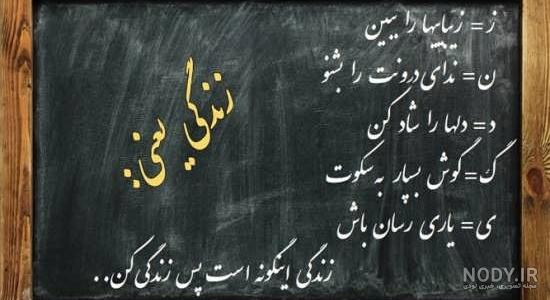 زندگی یعنی:
ز= زیباییها را ببین
ن= ندای درونت را بشنو
د= دلها را شاد کن
گ= گوش بسپار به سکوت
ی= یاری رسان باش
زندگی اینگونه است پس زندگی کن..
NODY.IR
مجله تصویری خبری نودی